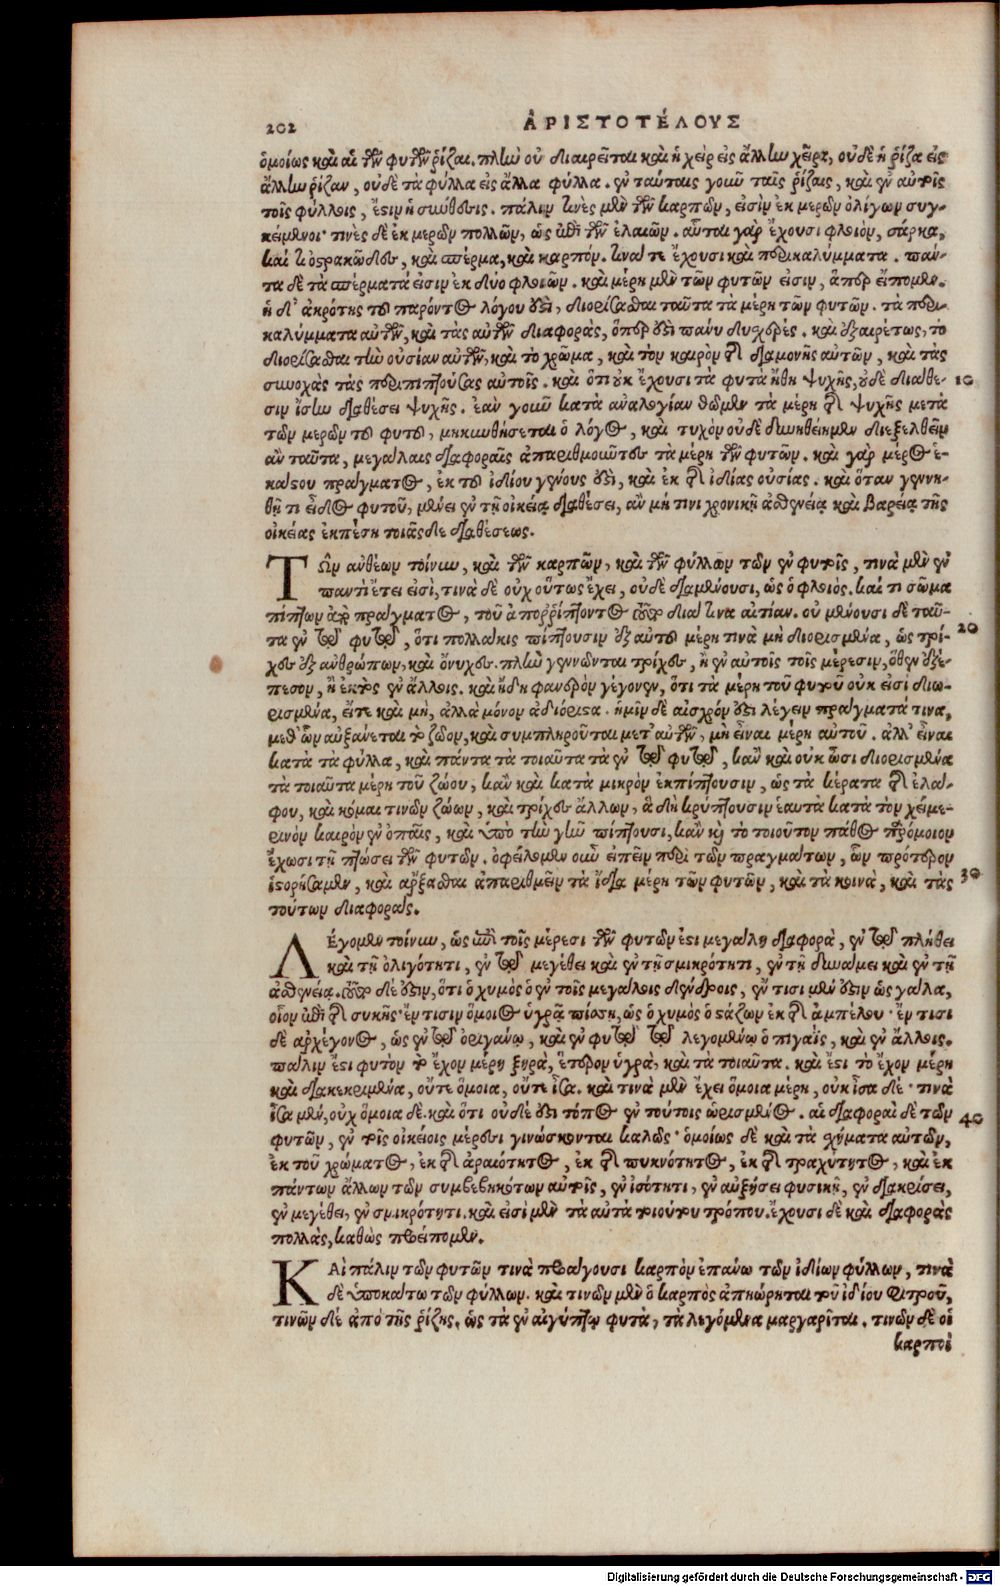 202
ἈΡΙΣΤΟΤΈΛΟΥΣ
ὁμοίως καὶ αἱ τῶν φυτῶν ῥίζαι. πλὴν οὐ διαιρεῖται καὶ ἡ χεὶρ εἰς ἄλλην χεῖρα, οὐδὲ ἡ ῥίζα εἰς
ἄλλην ῥίζαν, οὐδὲ τὰ φύλλα εἰς ἄλλα φύλλα. ἐν ταύταις γοῦν ταῖς ῥίζαις, καὶ ἐν αὐτοῖς
τοῖς φύλλοις, ἔστιν ἡ σύνθεσις. πάλιν τινὲς μὲν τῶν καρπῶν, εἰσὶν ἐκ μερῶν ὀλίγων συγ-
κείμενοι· τινὲς δὲ ἐκ μερῶν πολλῶν, ὡς ἐπὶ τῶν ἐλαιῶν. αὗται γὰρ ἔχουσι φλοιὸν, σάρκα,
καί τι ὀστρακῶδες, καὶ σπέρμα, καὶ καρπόν. τινά τε ἔχουσι καὶ περικαλύμματα. πάν-
τα δὲ τὰ σπέρματά εἰσιν ἐκ δύο φλοιῶν. καὶ μέρη μὲν τῶν φυτῶν εἰσιν, ἅπερ εἴπομεν.
ἡ δ' ἀκρότης τοῦ παρόντος λόγου ἐστὶ, διορίζεσθαι ταῦτα τὰ μέρη τῶν φυτῶν. τὰ περι-
καλύμματα αὐτῶν, καὶ τὰς αὐτῶν διαφορὰς, ὅπερ ἐστὶ πάνυ δυσχερές. καὶ ἐξαιρέτως, τὸ
διορίζεσθαι τὴν οὐσίαν αὐτῶν, καὶ τὸ χρῶμα, καὶ τὸν καιρὸν τῆς διαμονῆς αὐτῶν, καὶ τὰς
συνοχὰς τὰς περιπιπτούσας αὐτοῖς. καὶ ὅτι οὐκ ἔχουσι τὰ φυτὰ ἤθη ψυχῆς, οὐδὲ διάθε- 10
σιν ἴσην διαθέσει ψυχῆς. ἐὰν γοῦν κατὰ ἀναλογίαν θῶμεν τὰ μέρη τῆς ψυχῆς μετὰ
τῶν μερῶν τοῦ φυτοῦ, μηκυνθήσεται ὁ λόγος, καὶ τυχὸν οὐδὲ δυνηθείημεν διεξελθεῖν
ἂν ταῦτα, μεγάλαις διαφοραῖς ἀπαριθμοῦντες τὰ μέρη τῶν φυτῶν. καὶ γὰρ μέρος ἑ-
κάστου πράγματος, ἐκ τοῦ ἰδίου γένους ἐστὶ, καὶ ἐκ τῆς ἰδίας οὐσίας. καὶ ὅταν γεννη-
θῇ τι εἶδος φυτοῦ, μένει ἐν τῇ οἰκείᾳ διαθέσει, ἂν μή τινι χρονικῇ ἀσθενείᾳ καὶ βαρείᾳ τῆς
οἰκείας ἐκπέσῃ τοιᾶσδε διαθέσεως.
ΤΩν ἀνθέων τοίνυν, καὶ τῶν καρπῶν, καὶ τῶν φύλλων τῶν ἐν φυτοῖς, τινὰ μὲν ἐν
παντὶ ἔτει εἰσὶ, τινὰ δὲ οὐχ οὕτως ἔχει, οὐδὲ διαμένουσι, ὡς ὁ φλοιός. καί τι σῶμα
πίπτων ἀπὸ πράγματος, τοῦ ἀπορρίπτοντος τοῦτο διά τινα αἰτίαν. οὐ μένουσι δὲ ταῦ-
τα ἐν τῷ φυτῷ, ὅτι πολλάκις πίπτουσιν ἐξ αὐτοῦ μέρη τινὰ μὴ διορισμένα, ὡς τρί- 20
χες ἐξ ἀνθρώπων, καὶ ὄνυχες. πλὴν γεννῶνται τρίχες, ἢ ἐν αὐτοῖς τοῖς μέρεσιν, ὅθεν ἐξέ-
πεσον, ἢ ἐκτὸς ἐν ἄλλοις. καὶ ἤδη φανερὸν γέγονεν, ὅτι τὰ μέρη τοῦ φυτοῦ οὐκ εἰσὶ διω-
ρισμένα, εἴτε καὶ μὴ, ἀλλὰ μόνον ἀδιόριστα. ἡμῖν δὲ αἰσχρόν ἐστι λέγειν πράγματά τινα,
μεθ' ὧν αὐξάνεται τὸ ζῶον, καὶ συμπληροῦται μετ' αὐτῶν, μὴ εἶναι μέρη αὐτοῦ. ἀλλ' εἶναι
κατὰ τὰ φύλλα, καὶ πάντα τὰ τοιαῦτα τὰ ἐν τῷ φυτῷ, κἂν καὶ οὐκ ὦσι διορισμένα
τὰ τοιαῦτα μέρη τοῦ ζώου, κἂν καὶ κατὰ μικρὸν ἐκπίπτουσιν, ὡς τὰ κέρατα τῆς ἐλά-
φου, καὶ κόμαι τινῶν ζώων, καὶ τρίχες ἄλλων, ἃ δὴ κρύπτουσιν ἑαυτὰ κατὰ τὸν χειμε-
ρινὸν καιρὸν ἐν ὀπαῖς, καὶ ὑπὸ τὴν γῆν πίπτουσι, κἂν καὶ τὸ τοιοῦτον πάθος παρόμοιον
ἔχωσι τῇ πτώσει τῶν φυτῶν. ὀφείλομεν οὖν εἰπεῖν περὶ τῶν πραγμάτων, ὧν πρότερον
ἱστορήσαμεν, καὶ ἄρξασθαι ἀπαριθμεῖν τὰ ἴδια μέρη τῶν φυτῶν, καὶ τὰ κοινὰ, καὶ τὰς 30
τούτων διαφοράς.
ΛΕγομεν τοίνυν, ὡς ἐπὶ τοῖς μέρεσι τῶν φυτῶν ἐστι μεγάλη διαφορὰ, ἐν τῷ πλήθει
καὶ τῇ ὀλιγότητι, ἐν τῷ μεγέθει καὶ ἐν τῇ σμικρότητι, ἐν τῇ δυνάμει καὶ ἐν τῇ
ἀσθενείᾳ. τοῦτο δέ ἐστιν, ὅτι ὁ χυμὸς ὁ ἐν τοῖς μεγάλοις δένδροις, ἔν τισι μέν ἐστιν ὡς γάλα,
οἷον ἐπὶ τῆς συκῆς· ἔν τισιν ὅμοιος ὑγρᾷ πίσσῃ, ὡς ὁ χυμὸς ὁ στάζων ἐκ τῆς ἀμπέλου· ἔν τισι
δὲ ἀρχέγονος, ὡς ἐν τῷ ὀριγάνῳ, καὶ ἐν φυτῷ τῷ λεγομένῳ ὀπιγαῒς, καὶ ἐν ἄλλοις.
πάλιν ἔστι φυτὸν τὸ ἔχον μέρη ξηρὰ, ἕτερον ὑγρὰ, καὶ τὰ τοιαῦτα. καὶ ἔστι τὸ ἔχον μέρη
καὶ διακεκριμένα, οὔτε ὅμοια, οὔτε ἴσα. καὶ τινὰ μὲν ἔχει ὅμοια μέρη, οὐκ ἴσα δέ· τινὰ
ἴσα μὲν, οὐχ ὅμοια δέ. καὶ ὅτι οὐδέ ἐστι τόπος ἐν τούτοις ὡρισμένος. αἱ διαφοραὶ δὲ τῶν 40
φυτῶν, ἐν τοῖς οἰκείοις μέρεσι γινώσκονται καλῶς· ὁμοίως δὲ καὶ τὰ σχήματα αὐτῶν,
ἐκ τοῦ χρώματος, ἐκ τῆς ἀραιότητος, ἐκ τῆς πυκνότητος, ἐκ τῆς τραχύτητος, καὶ ἐκ
πάντων ἄλλων τῶν συμβεβηκότων αὐτοῖς, ἐν ἰσότητι, ἐν αὐξήσει φυσικῇ, ἐν διακρίσει,
ἐν μεγέθει, ἐν σμικρότητι. καὶ εἰσὶ μὲν τὰ αὐτὰ τοιούτου τρόπου. ἔχουσι δὲ καὶ διαφορὰς
πολλὰς, καθὼς προείπομεν.
ΚΑὶ πάλιν τῶν φυτῶν τινὰ προάγουσι καρπὸν ἐπάνω τῶν ἰδίων φύλλων, τινὰ
δὲ ὑποκάτω τῶν φύλλων. καὶ τινῶν μὲν ὁ καρπὸς ἀπῃώρηται τοῦ ἰδίου πέτρου,
τινῶν δὲ ἀπὸ τῆς ῥίζης, ὡς τὰ ἐν αἰγύπτῳ φυτὰ, τὰ λεγόμενα μαργαρῖται. τινῶν δὲ οἱ
καρποὶ
Digitalisierung gefördert durch die Deutsche Forschungsgemeinschaft - DFG